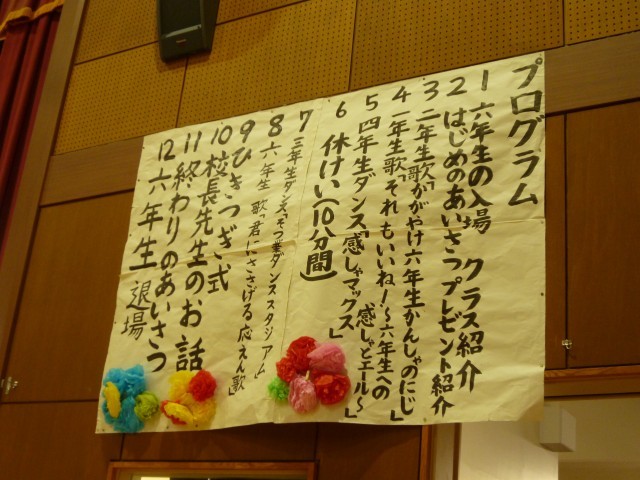 プログラム
1 六年生の入場 クラス紹介
2 はじめのあいさつプレゼント紹介
3 二年生歌「かがやけ六年生かんしゃのにじ」
4 一年生歌「それもいいね!~六年生への
感しゃとエール~」
5 四年生ダンス「感しゃマックス」
6 休けい(10分間)
7 三年生ダンス「そつ業ダンススタジアム」
8 六年生 歌「君にささげる応えん歌」
9 ひきつぎ式
10 校長先生のお話
11 終わりのあいさつ
12 六年生 退場